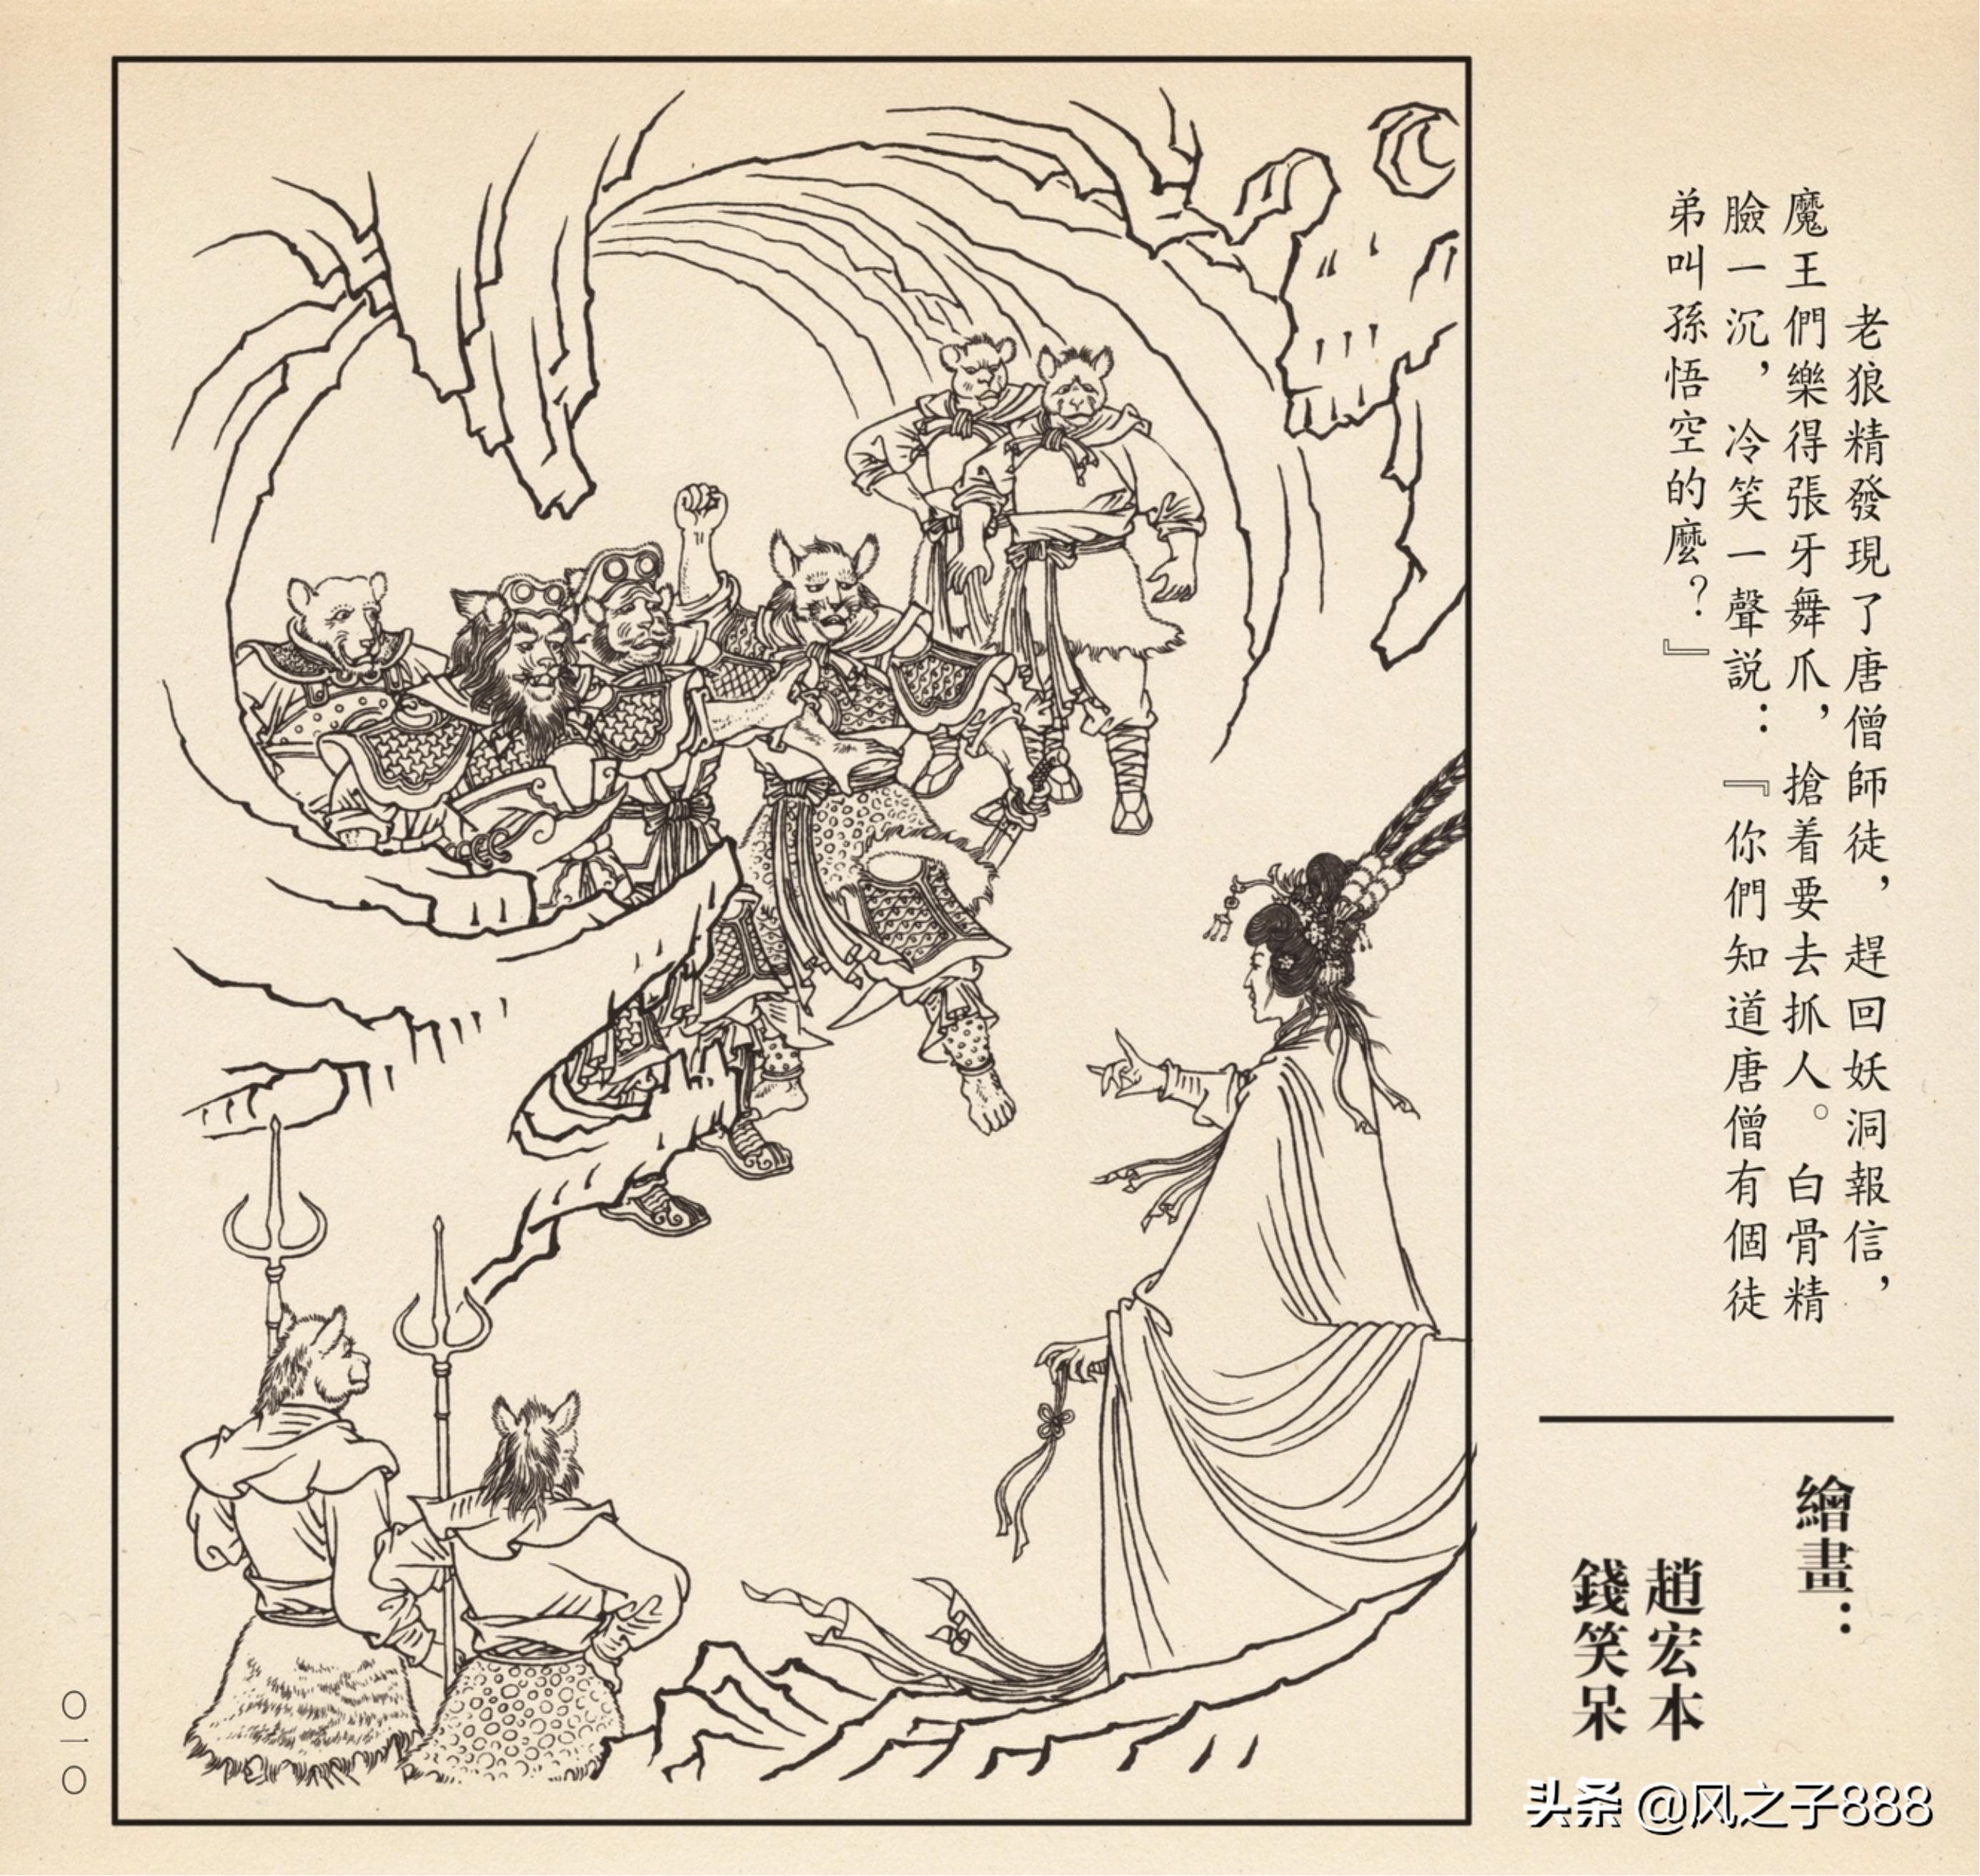 老狼精發現了唐僧師徒，趕回妖洞報信，
魔王們樂得張牙舞爪，搶着要去抓人。白骨精
臉一沉，冷笑一聲説：『你們知道唐僧有個徒
弟叫孫悟空的麼？』
繪畫：
趙宏本
錢笑呆
〇一〇
头条 @风之子888